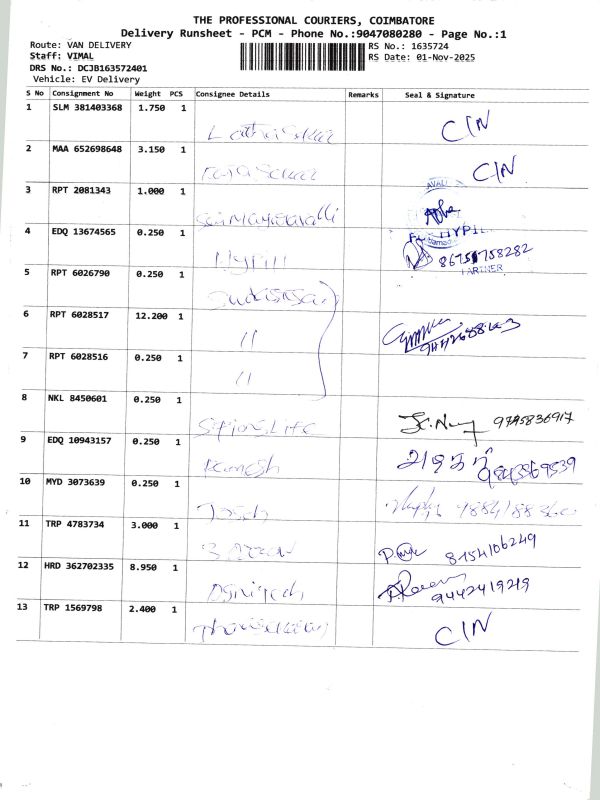 THE PROFESSIONAL COURIERS, COIMBATORE
Delivery Runsheet - PCM - Phone No.:9047080280 - Page No.:1
Route: VAN DELIVERY
RS No.: 1635724
Staff: VIMAL
RS Date: 01-Nov-2025
DRS No.: DCJB163572401
Vehicle: EV Delivery
S No Consignment No Weight PCS Consignee Details Remarks Seal & Signature
1 SLM 381403368 1.750 1 CIN
2 MAA 652698648 3.150 1 CIN
3 RPT 2081343 1.000 1
4 EDQ 13674565 0.250 1 Hypill
PARTNER
5 RPT 6026790 0.250 1
6 RPT 6028517 12.200 1 11
7 RPT 6028516 0.250 1 11
8 NKL 8450601 0.250 1 9795836917
9 EDQ 10943157 0.250 1 Ramesh
10 MYD 3073639 0.250 1
11 TRP 4783734 3.000 1 8154106249
12 HRD 362702335 8.950 1 9442419219
13 TRP 1569798 2.400 1 CIN